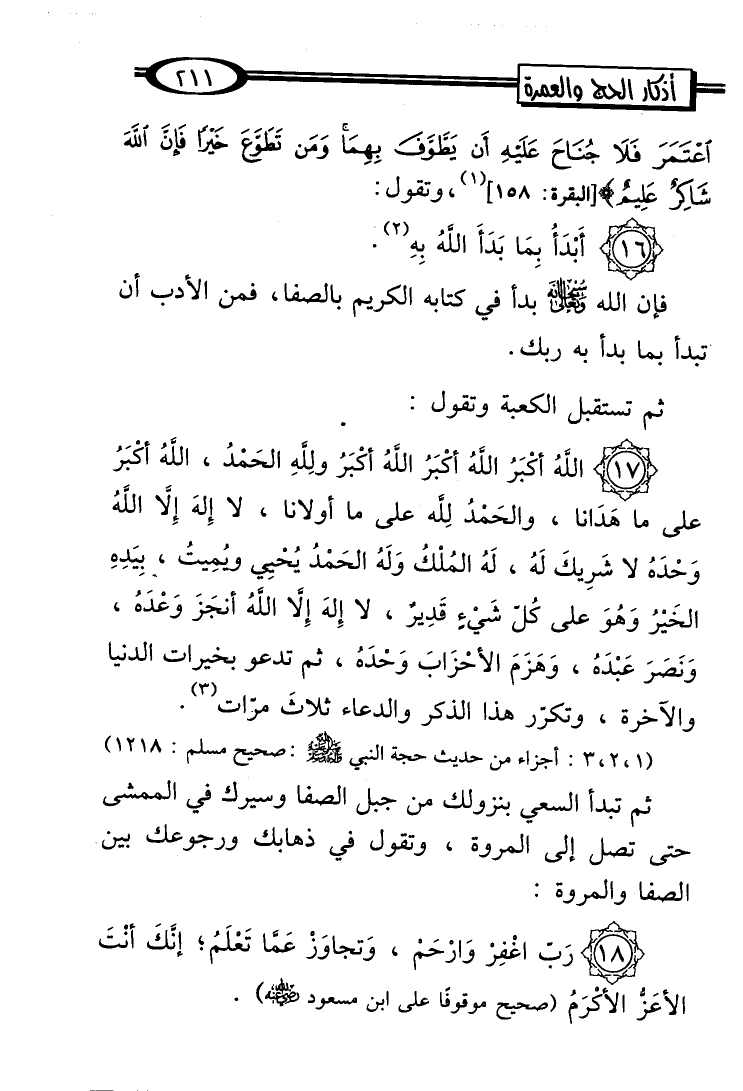 أذكار الحج والعمرة ٢١١
ٱعْتَمَرَ فَلَا جُنَاحَ عَلَيْهِ أَن يَطَّوَّفَ بِهِمَا ۚ وَمَن تَطَوَّعَ خَيْرًا فَإِنَّ ٱللَّهَ
شَاكِرٌ عَلِيمٌ﴾[البقرة: ١٥٨](١)، وتقول:
١٦ أَبْدَأُ بِمَا بَدَأَ اللَّهُ بِهِ(٢).
فإن الله ﷾ بدأ في كتابه الكريم بالصفا، فمن الأدب أن
تبدأ بما بدأ به ربك.
ثم تستقبل الكعبة وتقول :
١٧ اللَّهُ أكْبَرُ اللَّهُ أكْبَرُ اللَّهُ أكْبَرُ ولِلَّهِ الحَمْدُ ، اللَّهُ أكْبَرُ
على ما هَدَانا ، والحَمْدُ لِلَّه على ما أولانا ، لا إلهَ إلَّا اللَّهُ
وَحْدَهُ لا شَرِيكَ لَهُ ، لَهُ المُلْكُ وَلَهُ الحَمْدُ يُحْيِي ويُمِيتُ ، بِيَدِهِ
الخَيْرُ وَهُوَ على كُلّ شَيْءٍ قَدِيرٌ ، لا إلهَ إلَّا اللَّهُ أنجَزَ وَعْدَهُ ،
وَنَصَرَ عَبْدَهُ ، وَهَزَمَ الأحْزَابَ وَحْدَهُ ، ثم تدعو بخيرات الدنيا
والآخرة ، وتكرّر هذا الذكر والدعاء ثلاثَ مرّات(٣).
(٣،٢،١ : أجزاء من حديث حجة النبي ﷺ : صحيح مسلم : ١٢١٨)
ثم تبدأ السعي بنزولك من جبل الصفا وسيرك في الممشى
حتى تصل إلى المروة ، وتقول في ذهابك ورجوعك بين
الصفا والمروة :
١٨ رَبّ اغْفِرْ وَارْحَمْ ، وَتجاوَزْ عَمَّا تَعْلَمُ؛ إنَّكَ أنْتَ
الأعَزُّ الأكْرَمُ (صحيح موقوفًا على ابن مسعود رضي الله عنه) .